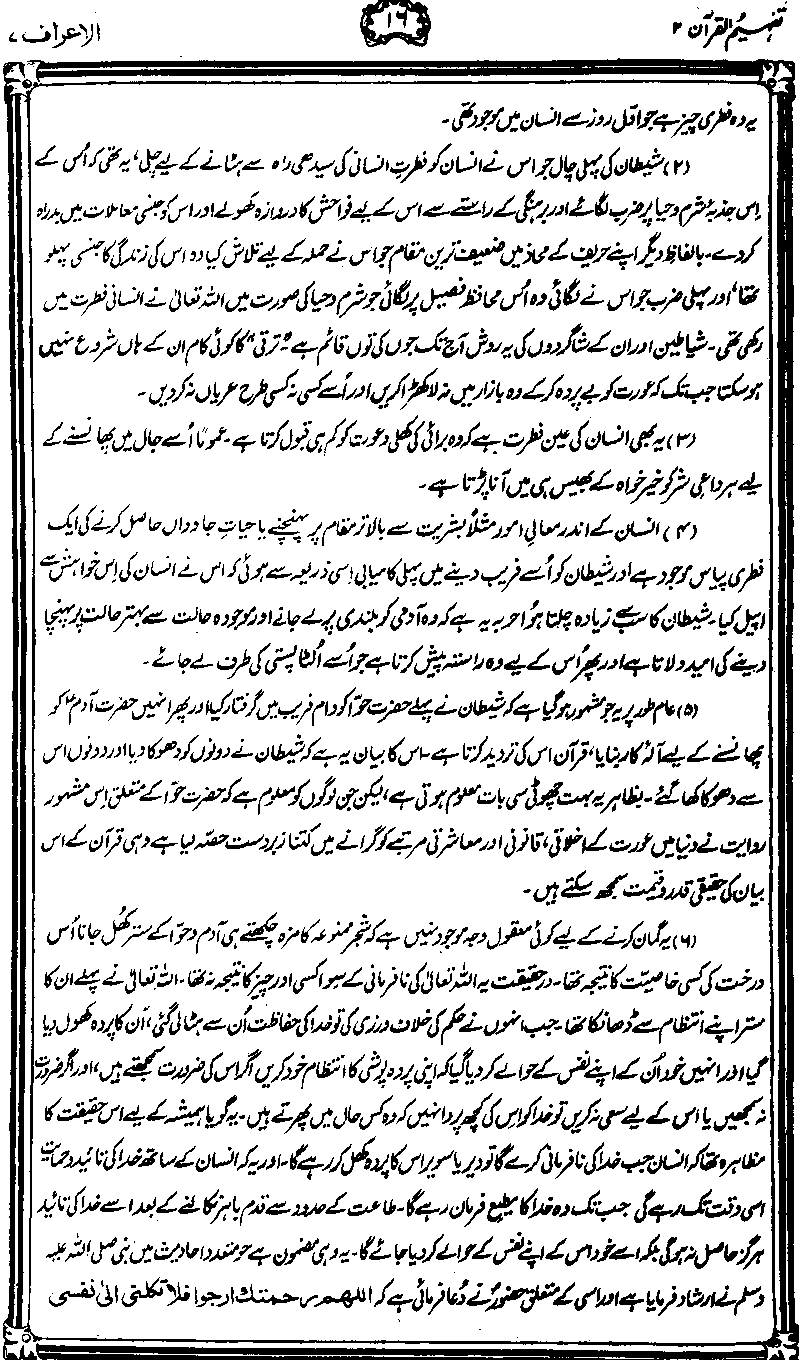 تفہیم القرآن ۲
۱۶
الاعراف ۷
یہ وہ فطری چیز ہے جو اوّل روز سے انسان میں موجود تھی۔
(۲) شیطان کی پہلی چال جو اس نے انسان کو فطرتِ انسانی کی سیدھی راہ سے ہٹانے کے لیے چلی، یہ تھی کہ اُس کے
اِس جذبۂ شرم و حیا پر ضرب لگائے اور برہنگی کے راستے سے اس کے لیے فواحش کا دروازہ کھولے اور اس کو جنسی معاملات میں بدراہ
کر دے۔ بالفاظِ دیگر اپنے حریف کے محاذ میں ضعیف ترین مقام جو اس نے حملہ کے لیے تلاش کیا وہ اس کی زندگی کا جنسی پہلو
تھا، اور پہلی ضرب جو اس نے لگائی وہ اُس محافظ فصیل پر لگائی جو شرم و حیا کی صورت میں اللہ تعالیٰ نے انسانی فطرت میں
رکھی تھی۔ شیاطین اور ان کے شاگردوں کی یہ روش آج تک جوں کی توں قائم ہے۔ ”ترقی“ کا کوئی کام ان کے ہاں شروع نہیں
ہو سکتا جب تک کہ عورت کو بے پردہ کر کے وہ بازار میں نہ لا کھڑا کریں اور اُسے کسی نہ کسی طرح عریاں نہ کر دیں۔
(۳) یہ بھی انسان کی عین فطرت ہے کہ وہ برائی کی کھلی دعوت کو کم ہی قبول کرتا ہے۔ عموماً اُسے جال میں پھانسنے کے
لیے ہر داعیِ شر کو خیر خواہ کے بھیس ہی میں آنا پڑتا ہے۔
(۴) انسان کے اندر معالی امور مثلاً بشریت سے بالاتر مقام پر پہنچنے یا حیاتِ جاوداں حاصل کرنے کی ایک
فطری پیاس موجود ہے اور شیطان کو اُسے فریب دینے میں پہلی کامیابی اِسی ذریعہ سے ہوئی کہ اس نے انسان کی اِس خواہش سے
اپیل کیا۔ شیطان کا سب سے زیادہ چلتا ہُوا حربہ یہ ہے کہ وہ آدمی کو بلندی پر لے جانے اور موجودہ حالت سے بہتر حالت پر پہنچا
دینے کی امید دلاتا ہے اور پھر اُس کے لیے وہ راستہ پیش کرتا ہے جو اُسے اُلٹا پستی کی طرف لے جائے۔
(۵) عام طور پر یہ جو مشہور ہو گیا ہے کہ شیطان نے پہلے حضرت حوّا کو دام فریب میں گرفتار کیا اور پھر انہیں حضرت آدمؑ کو
پھانسنے کے لیے آلۂ کار بنایا، قرآن اس کی تردید کرتا ہے۔ اس کا بیان یہ ہے کہ شیطان نے دونوں کو دھوکا دیا اور دونوں اس
سے دھوکا کھا گئے۔ بظاہر یہ بہت چھوٹی سی بات معلوم ہوتی ہے، لیکن جن لوگوں کو معلوم ہے کہ حضرت حوّا کے متعلق اِس مشہور
روایت نے دنیا میں عورت کے اخلاقی، قانونی اور معاشرتی مرتبے کو گرانے میں کتنا زبردست حصّہ لیا ہے وہی قرآن کے اس
بیان کی حقیقی قدر و قیمت سمجھ سکتے ہیں۔
(۶) یہ گمان کرنے کے لیے کوئی معقول وجہ موجود نہیں ہے کہ شجرِ ممنوعہ کا مزہ چکھتے ہی آدم و حوّا کے ستر کھُل جانا اُس
درخت کی کسی خاصیت کا نتیجہ تھا۔ درحقیقت یہ اللہ تعالیٰ کی نافرمانی کے سوا کسی اور چیز کا نتیجہ نہ تھا۔ اللہ تعالیٰ نے پہلے ان کا
ستر اپنے انتظام سے ڈھانکا تھا۔ جب انہوں نے حکم کی خلاف ورزی کی تو خدا کی حفاظت اُن سے ہٹا لی گئی، اُن کا پردہ کھول دیا
گیا اور انہیں خود اُن کے اپنے نفس کے حوالے کر دیا گیا کہ اپنی پردہ پوشی کا انتظام خود کریں اگر اس کی ضرورت سمجھتے ہیں، اور اگر ضرورت
نہ سمجھیں یا اس کے لیے سعی نہ کریں تو خدا کو اِس کی کچھ پروا نہیں کہ وہ کس حال میں پھرتے ہیں۔ یہ گویا ہمیشہ کے لیے اس حقیقت کا
مظاہرہ تھا کہ انسان جب خدا کی نافرمانی کرے گا تو دیر یا سویر اس کا پردہ کھل کر رہے گا۔ اور یہ کہ انسان کے ساتھ خدا کی تائید و حمایت
اسی وقت تک رہے گی جب تک وہ خدا کا مطیع فرمان رہے گا۔ طاعت کے حدود سے قدم باہر نکالنے کے بعد اسے خدا کی تائید
ہرگز حاصل نہ ہوگی بلکہ اسے خود اس کے اپنے نفس کے حوالے کر دیا جائے گا۔ یہ وہی مضمون ہے جو متعدد احادیث میں نبی صلی اللہ علیہ
وسلم نے ارشاد فرمایا ہے اور اسی کے متعلق حضورؐ نے دُعا فرمائی ہے کہ اللھم رحمتك ارجوا فلا تكلنی الیٰ نفسی